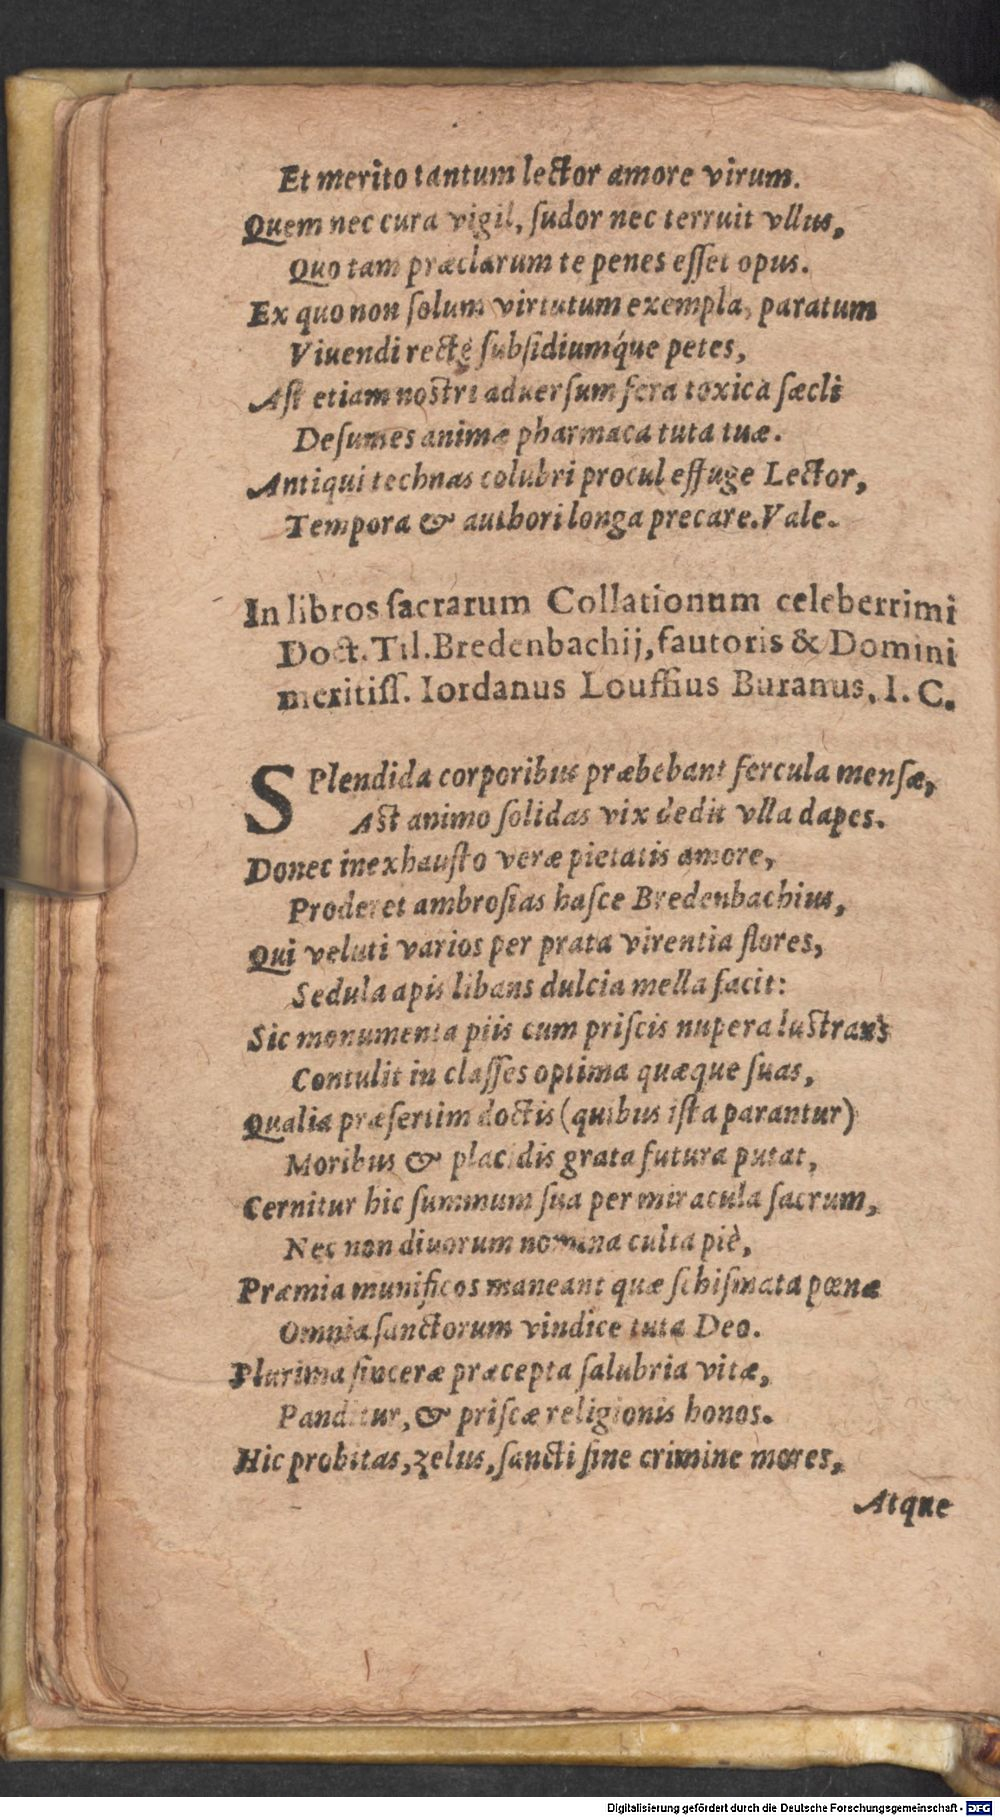 Et merito tantum lector amore virum.
Quem nec cura vigil, ſudor nec terruit vllus,
Quo tam præclarum te penes eſſet opus.
Ex quo non ſolum virtutum exempla, paratum
Viuendi rectè ſubſidiumq́ue petes,
Aſt etiam noſtri aduerſum fera toxica ſæcli
Deſumes animæ pharmaca tuta tuæ.
Antiqui technas colubri procul effuge Lector,
Tempora & authori longa precare. Vale.
In libros ſacrarum Collationum celeberrimi
Doct. Til. Bredenbachij, fautoris & Domini
meritiſſ. Iordanus Louffius Buranus, I. C.
SPlendida corporibus præbebant fercula menſæ,
Aſt animo ſolidas vix dedit vlla dapes.
Donec inexhauſto veræ pietatis amore,
Proderet ambroſias haſce Bredenbachius,
Qui veluti varios per prata virentia flores,
Sedula apis libans dulcia mella facit:
Sic monumenta piis cum priſcis nupera luſtrans
Contulit in claſſes optima quæque ſuas,
Qualia præſertim doctis (quibus iſta parantur)
Moribus & placidis grata futura putat,
Cernitur hic ſummum ſua per miracula ſacrum,
Nec non diuorum nomina culta piè,
Præmia munificos maneant quæ ſchiſmata pœnæ
Omnia ſanctorum vindice tuta Deo.
Plurima ſinceræ præcepta ſalubria vitæ,
Panditur, & priſcæ religionis honos.
Hic probitas, zelus, ſancti ſine crimine mores,
Atque
Digitalisierung gefördert durch die Deutsche Forschungsgemeinschaft - DFG